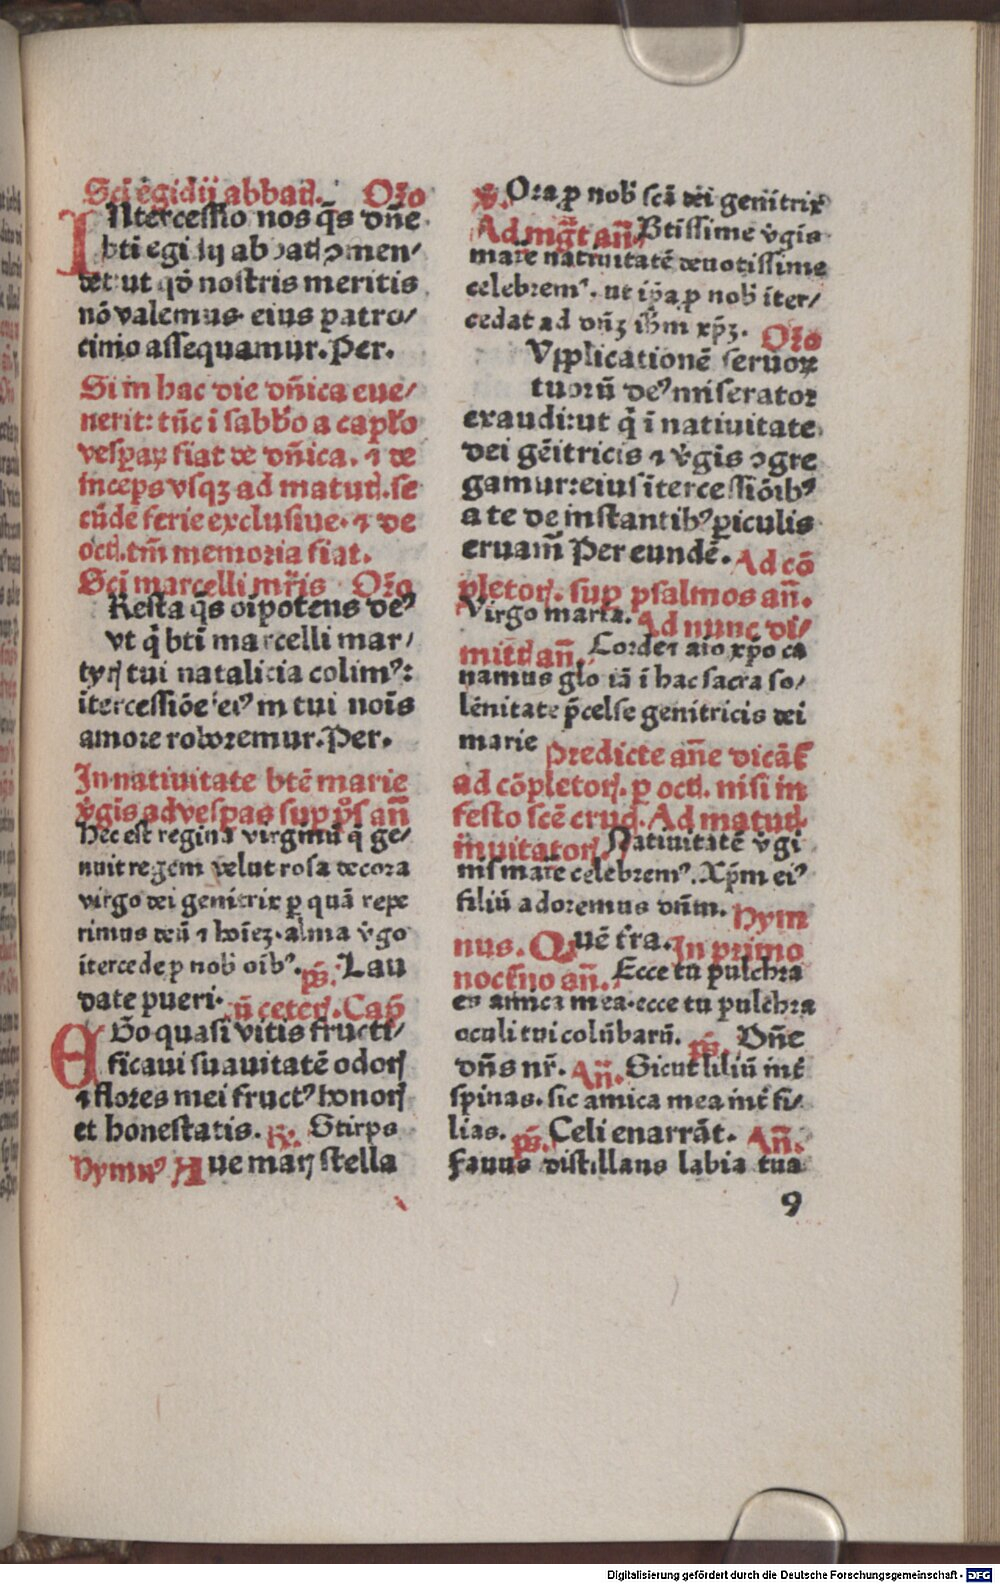 Sci egidii abbatꝭ. Oꝛ̃o
INtercessio nos q̄s dn̄e
bti egidij abbatꝭ ↄmen/
det: ut qd̓ nostris meritis
nō valemus eius ꝑatro/
cinio assequamur. Per.
Si in hac die dn̄ica eue/
nerit: tūc ī sabbo a capło
vesꝑaꝝ fiat de dn̄ica. ⁊ de
inceps vsqꝫ ad matutꝭ. se
cūde ferie exclusiue. ⁊ de
octꝭ. tm̄ memoria fiat.
Scī marcelli mr̃is Oꝛ̃o
Resta q̄s oīpotens deꝰ
vt q̄ btī marcelli mar/
tyrꝭ tui natalicia colimꝰ:
itercessiōe eiꝰ in tui noīs
amore roboremur. Per.
In natiuitate btē marie
v̓gis ad vesꝑas suꝑ pͦs an̄
Hec est regina virginū q̄ ge/
nuit regem velut rosa decora
virgo dei genitrix ꝑ quā repe
rimus deū ⁊ hoīeꝫ. alma v̓go
itercede ꝑ nob̓ oībꝰ. pͦs. Lau
date pueri. cū ceterꝭ. Cap̄
EGo quasi vitis fructi/
ficaui suauitatē odorꝭ
⁊ flores mei fructꝰ honorꝭ
et honestatis. ℟. Stirps
Hymnꝰ Aue marꝭ stella
℣. Ora ꝑ nob̓ scā dei genitrix
Ad mg̃t an̄. Btissime v̓gis
marie natiuitatē deuotissime
celebremꝰ. ut ip̄a ꝑ nob̓ īter/
cedat ad dn̄ꝫ ihm̄ xp̄ꝫ. Oꝛ̃o
Vpplicationē seruoꝝ
tuorū deꝰ miserator
exaudi: ut q̄ ī natiuitate
dei gēitricis ⁊ v̓gis ↄgre
gamur: eius ītercessiōibꝰ
a te de instantibꝰ ꝑiculis
eruam̃ Per eundē. Ad cō
pletorꝭ. suꝑ psalmos an̄.
Virgo maria. Ad nunc di/
mittꝭ an̄. Corde ⁊ aīo xp̄o ca
namus gloriā ī hac sacra so/
lēnitate p̄celse genitricis dei
marie Predicte an̄e dicāt̄
ad cōpletorꝭ. ꝑ octꝭ. nisi in
festo scē crucꝭ. Ad matutꝭ
inuitatorꝭ. Natiuitatē v̓gi
nis marie celebremꝰ. Xp̄m eiꝰ
filiū adoremus dn̄m. Hym
nus. Quē t̄ra. In primo
nocťno an̄. Ecce tu pulchra
es amica mea. ecce tu pulchra
oculi tui colūbarū. pͦs. Dn̄e
dn̄s nr̄. An̄. Sicut liliū int̄
spinas. sic amica mea int̄ fi/
lias. pͦs. Celi enarrāt. An̄.
Fauus distillans labia tua
9
Digitalisierung gefördert durch die Deutsche Forschungsgemeinschaft - DFG